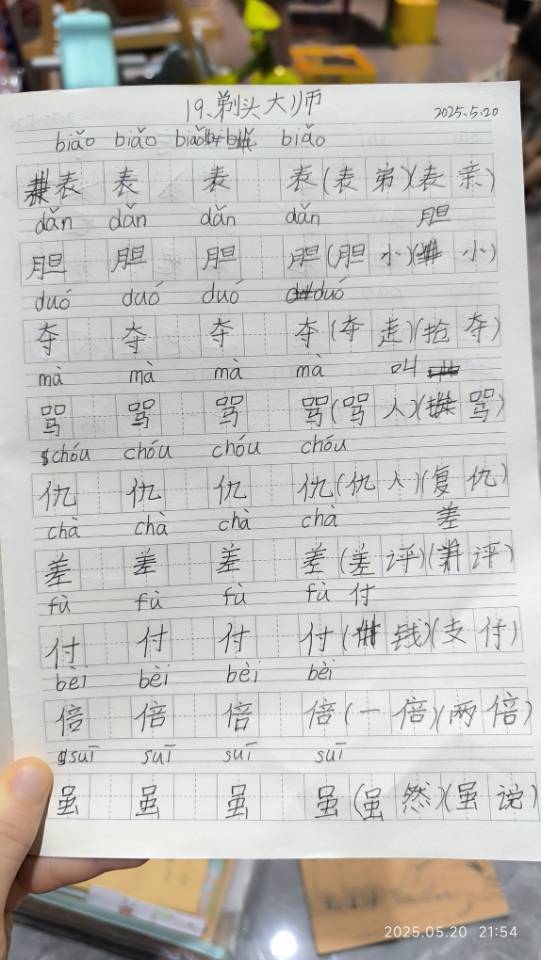 19.剃头大师
2025.5.20
biǎo biǎo biǎo biǎo
表 表 表 表(表弟)(表亲)
dǎn dǎn dǎn dǎn 胆
胆 胆 胆 胆(胆小)( 小)
duó duó duó duó
夺 夺 夺 夺(夺走)(抢夺)
mà mà mà mà 叫
骂 骂 骂 骂(骂人)( 骂)
chóu chóu chóu chóu
仇 仇 仇 仇(仇人)(复仇)
chà chà chà chà 差
差 差 差 差(差评)( 评)
fù fù fù fù 付
付 付 付 付( 钱)(支付)
bèi bèi bèi bèi
倍 倍 倍 倍(一倍)(两倍)
suī suī suī suī
虽 虽 虽 虽(虽然)(虽说)
2025.05.20 21:54